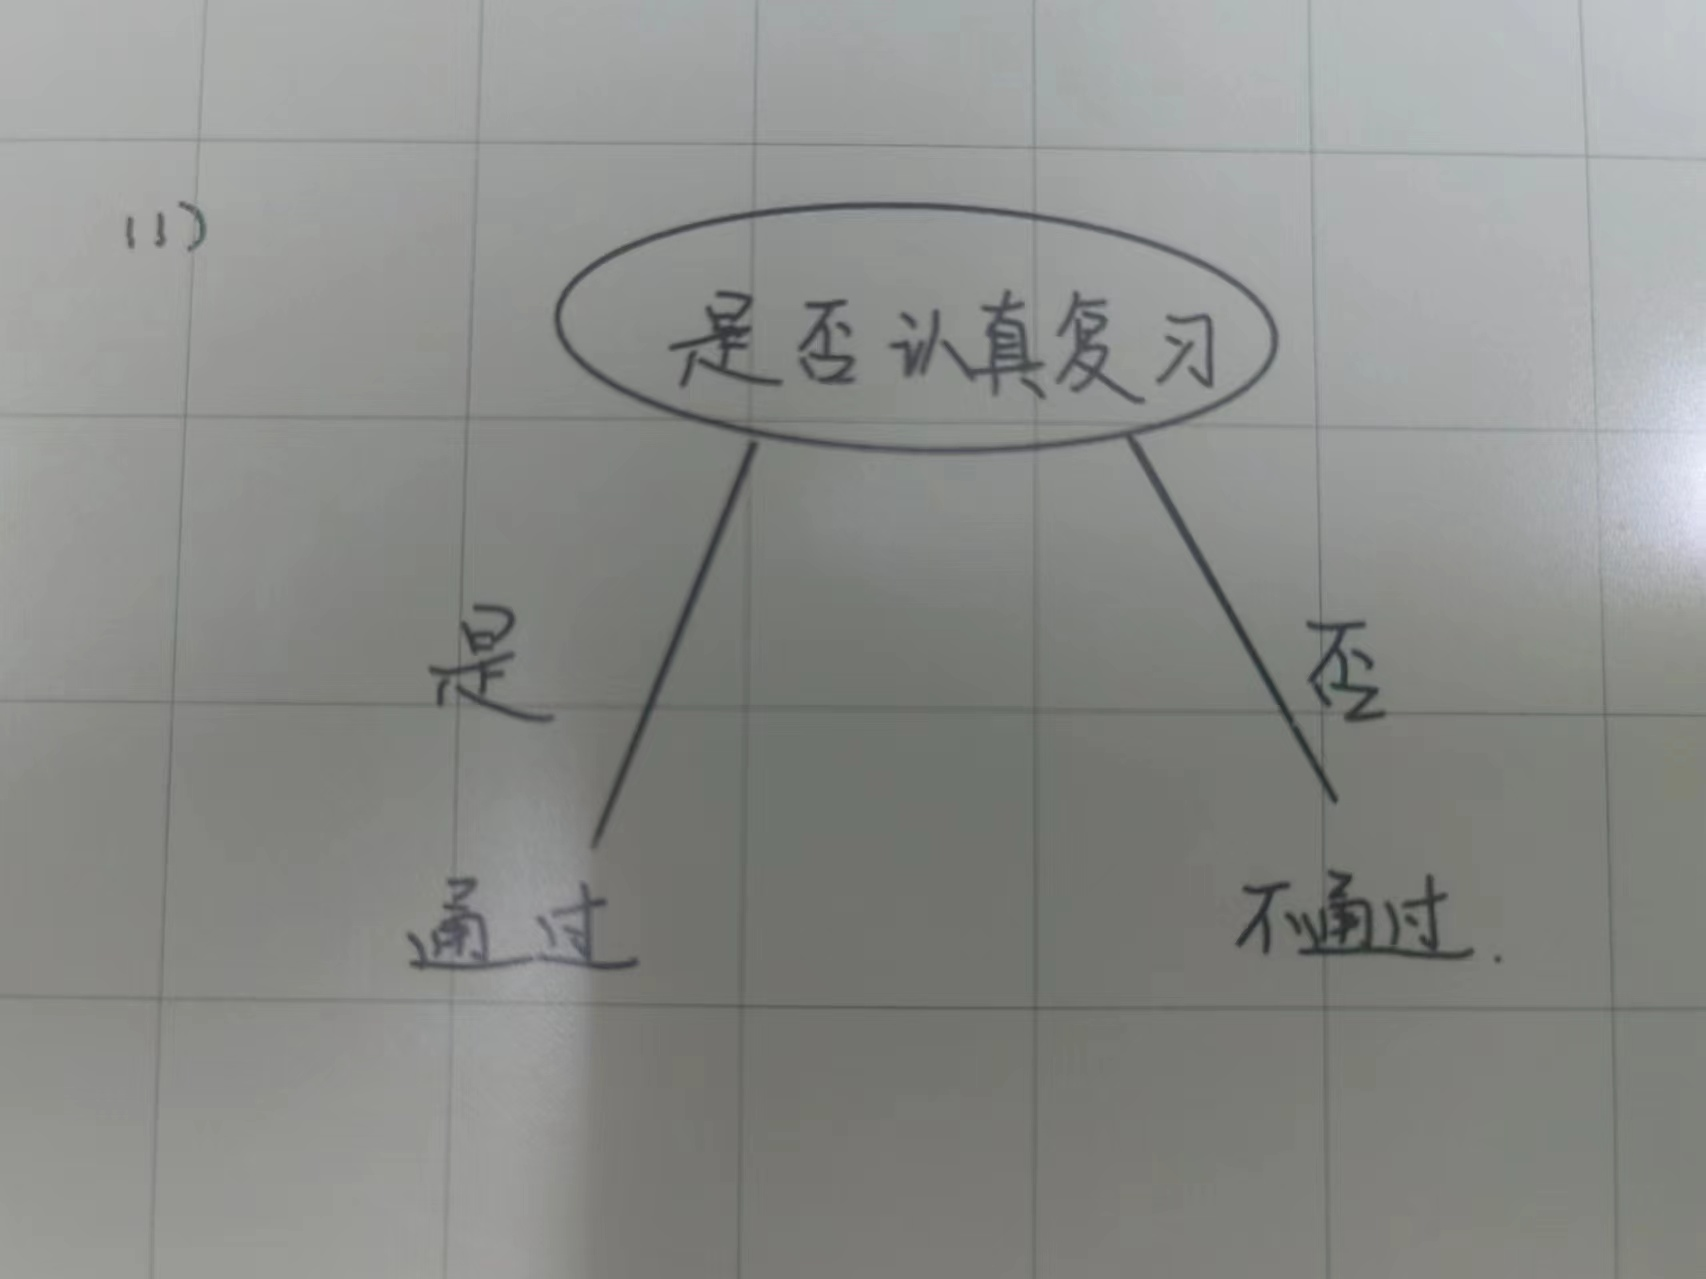 (1)
是否认真复习
是
否
通过
不通过.